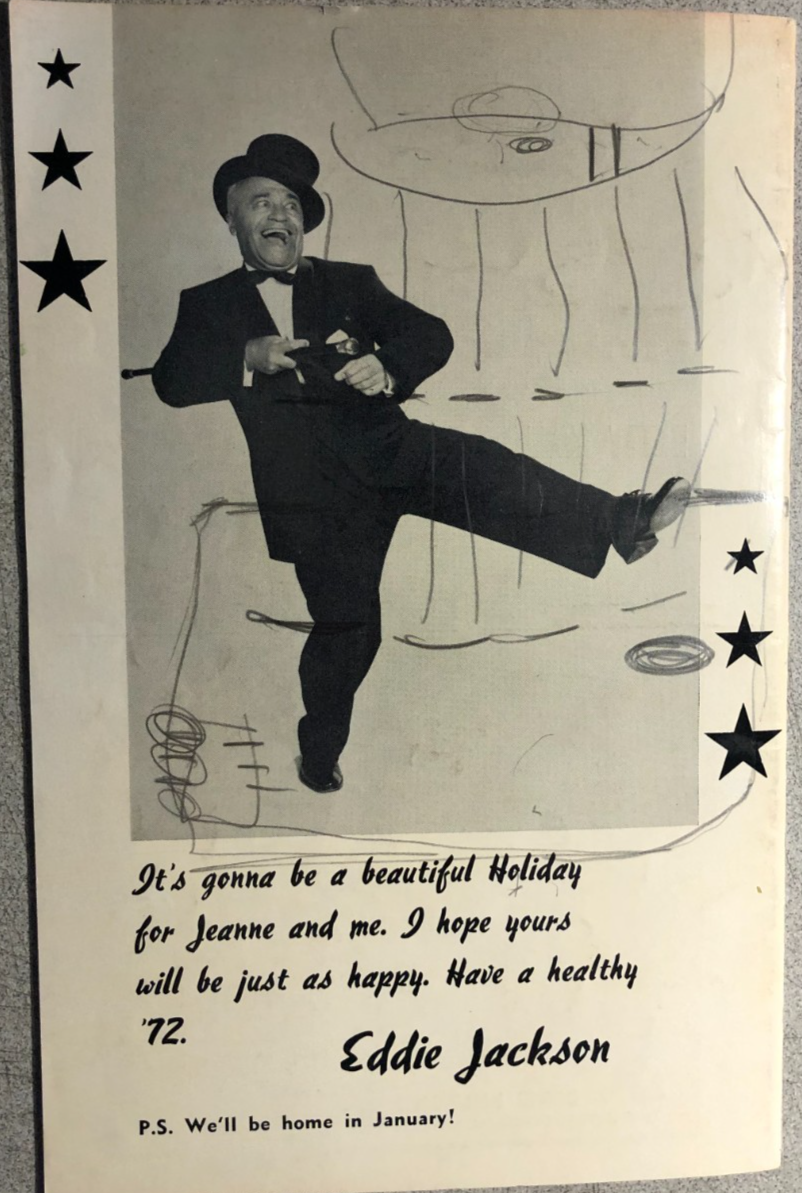 It's gonna be a beautiful Holiday
for Jeanne and me. I hope yours
will be just as happy. Have a healthy
'72.
Eddie Jackson
P.S. We'll be home in January!